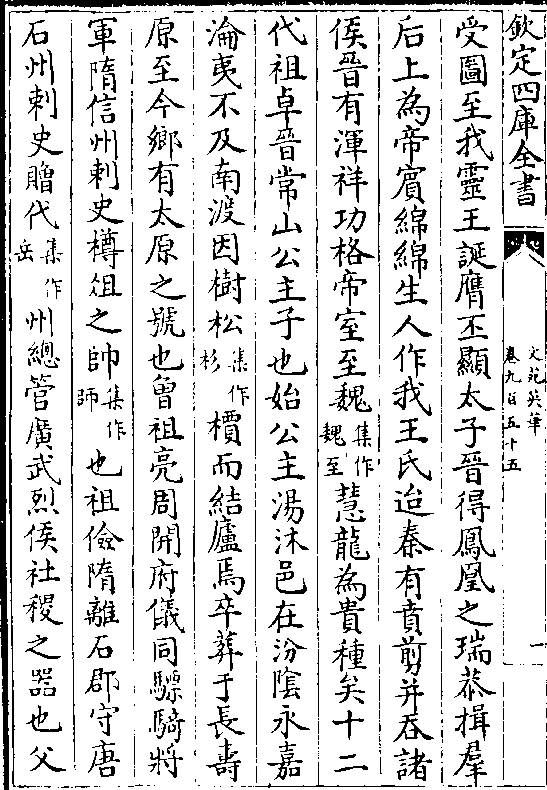 欽定四庫全書
文苑英華
卷九百五十五
一
受圖至我靈王誕膺丕顯太子晉得鳳凰之瑞恭揖羣
后上為帝賓綿綿生人作我王氏迨秦有賁剪并吞諸
侯晉有渾祥功格帝室至魏集作魏至慧龍為貴種矣十二
代祖卓晉常山公主子也始公主湯沐邑在汾陰永嘉
淪夷不及南渡因樹松集作杉檟而結廬焉卒葬于長壽
原至今鄉有太原之號也曾祖亮周開府儀同驃騎將
軍隋信州刺史樽俎之帥集作師也祖儉隋離石郡守唐
石州刺史贈代集作岳州總管廣武烈侯社稷之器也父